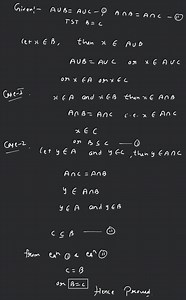 Given:- A∪B = A∪C -① A∩B = A∩C -②
TST B = C
let x∈B, then x ∈ A∪B
A∪B = A∪C or x ∈ A∪C
or x∈A or x∈C
Case-1 x∈A and x∈B then x∈A∩B
A∩B = A∩C i.e. x∈A∩C
x∈C
or B⊆C —①
Case-2 let y∈A and y∈C, then y∈A∩C
A∩C = A∩B
y∈A∩B
y∈A and y∈B
C⊆B —②
from eqⁿ ① & eqⁿ ②
C = B
or B = C Hence Proved